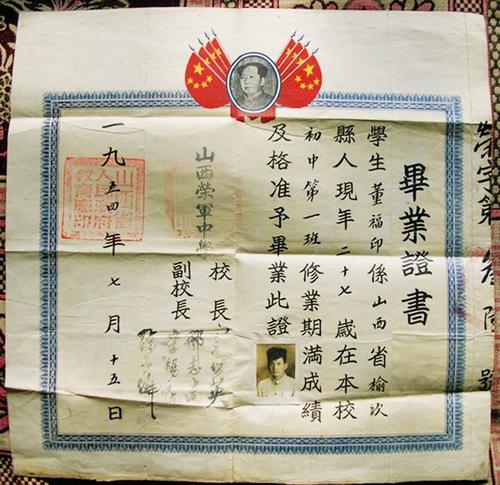 榮字第
號
畢業證書
學生董福印係山西省榆次
縣人現年二十七歲在本校
初中第一班修業期滿成績
及格准予畢業此證
山西榮軍中學
校長
副校長
一九五四年七月十五日
山西省人民政府教育廳印